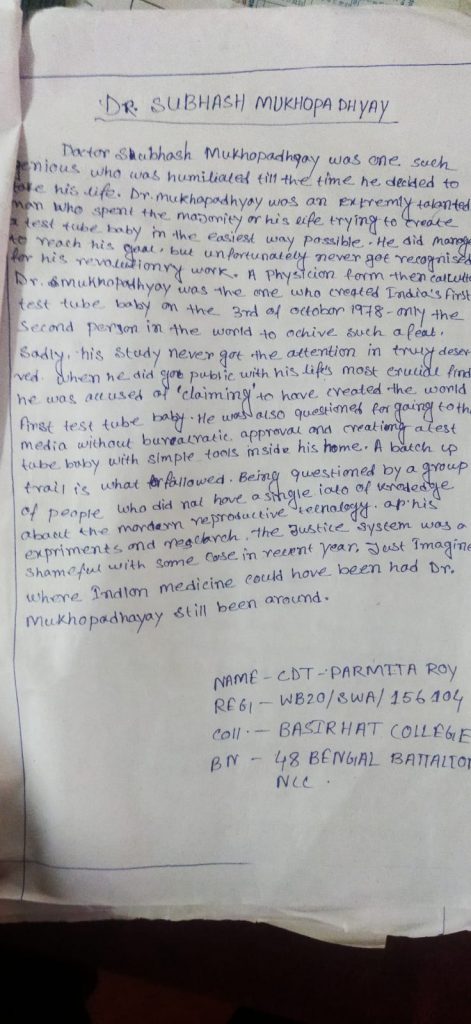 DR. SUBHASH MUKHOPADHYAY
Doctor Shubhash Mukhopadhyay was one such
genious who was humiliated till the time he decided to
take his life. Dr. Mukhopadhyay was an extremly talanted
man who spent the majority or his life trying to create
a test tube baby in the easiest way possible. He did manage
to reach his goal, but unfortunately never got recognised
for his revalutionry work. A Physicion form then calcutta
Dr. Smukhopadhyay was the one who created India's first
test tube baby on the 3rd of octobar 1978 - only the
second person in the world to ochive such a feat.
Sadly, his study never got the attention in truly deser
ved. When he did got public with his lifts most crucial find
he was accused of 'claiming' to have created the world
first test tube baby. He was also questioned for going to th
media without bureacratic approval and creationg a test
tube baby with simple tools inside his home. A batch up
trail is what followed. Being questioned by a group
of people who did nat have a single iato of knodedge
about the mordern reproductive tecnalogy. ap his
expriments and reaclarch. The Justice system was a
shameful with some case in recent year. Just Imagine
where Indlon medicine could hove been had Dr.
Mukhopadhayay still been around.
NAME - CDT - PARMITA ROY
REGI - WB20/SWA/156104
Coll. - BASIRHAT COLLEGE
BN - 48 BENGAL BATTALION
NCC.